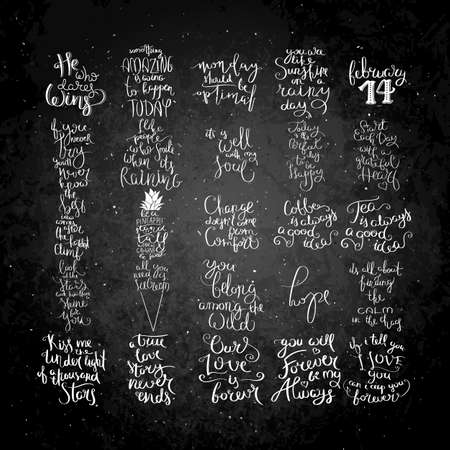 He
who
dares
Wins
something
AMAZING
is going
to happen
TODAY
monday
should be
optional
you are
like
Sunshine
on a
rainy
day
february
14
if you
never
try
you'll
never
know
the
best
view
comes
after
the
hardest
climb
look
stars
shine
for
you
like
people
who smile
when it's
Raining
be a
pineapple
stand
tall
wear a
crown
all you
need is
icecream
it's
well
with my
Soul
Today
is the
Perfect
day
to be
Happy
Start
Each Day
with a
grateful
Heart
Change
doesn't come
from
Comfort
Coffee
is always
a good
idea
Tea is
always
a good
idea
you
belong
among the
wild
hope
it's all about
finding
the
CALM
in the chaos
Kiss me
under light
of a thousand
Stars
a true
love
story
never
ends
Our
Love
is
forever
you will
Forever
be my
Always
if i tell you
I LOVE
you
can i keep you
forever